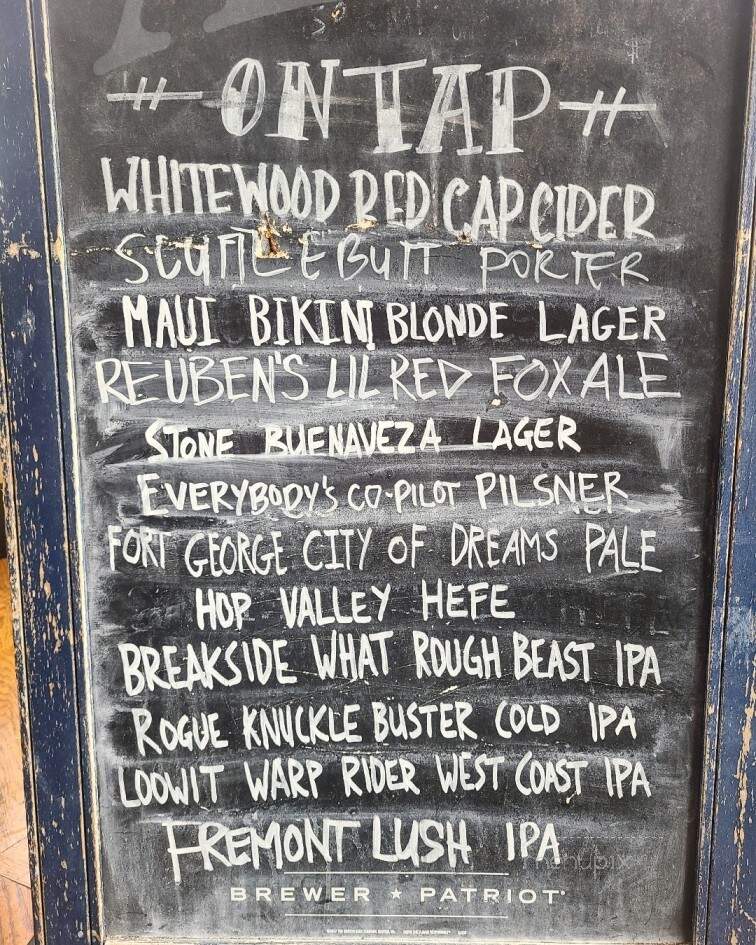 ON TAP
WHITEWOOD RED CAP CIDER
SCUTTLEBUTT PORTER
MAUI BIKINI BLONDE LAGER
REUBEN'S LIL RED FOX ALE
STONE BUENAVEZA LAGER
EVERYBODY'S CO-PILOT PILSNER
FORT GEORGE CITY OF DREAMS PALE
HOP VALLEY HEFE
BREAKSIDE WHAT ROUGH BEAST IPA
ROGUE KNUCKLE BUSTER COLD IPA
LOOWIT WARP RIDER WEST COAST IPA
FREMONT LUSH IPA
menupix
BREWER ★ PATRIOT